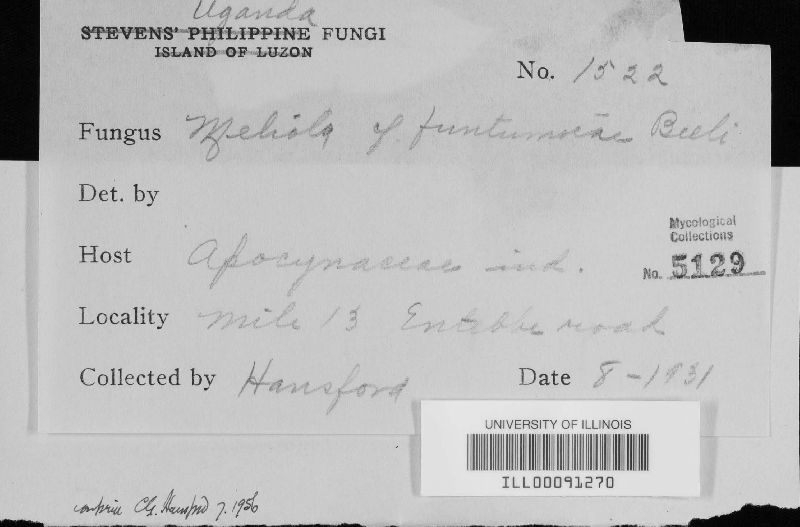 Uganda
STEVENS' PHILIPPINE FUNGI
ISLAND OF LUZON
No. 1522
Fungus Meliola f. funtumiae Beeli
Det. by
Host Apocynaceae ind.
Mycological
Collections
No. 5129
Locality Mile 13 Entebbe road
Collected by Hansford
Date 8-1931
UNIVERSITY OF ILLINOIS
ILL00091270
C.G. Hansford 7.1956